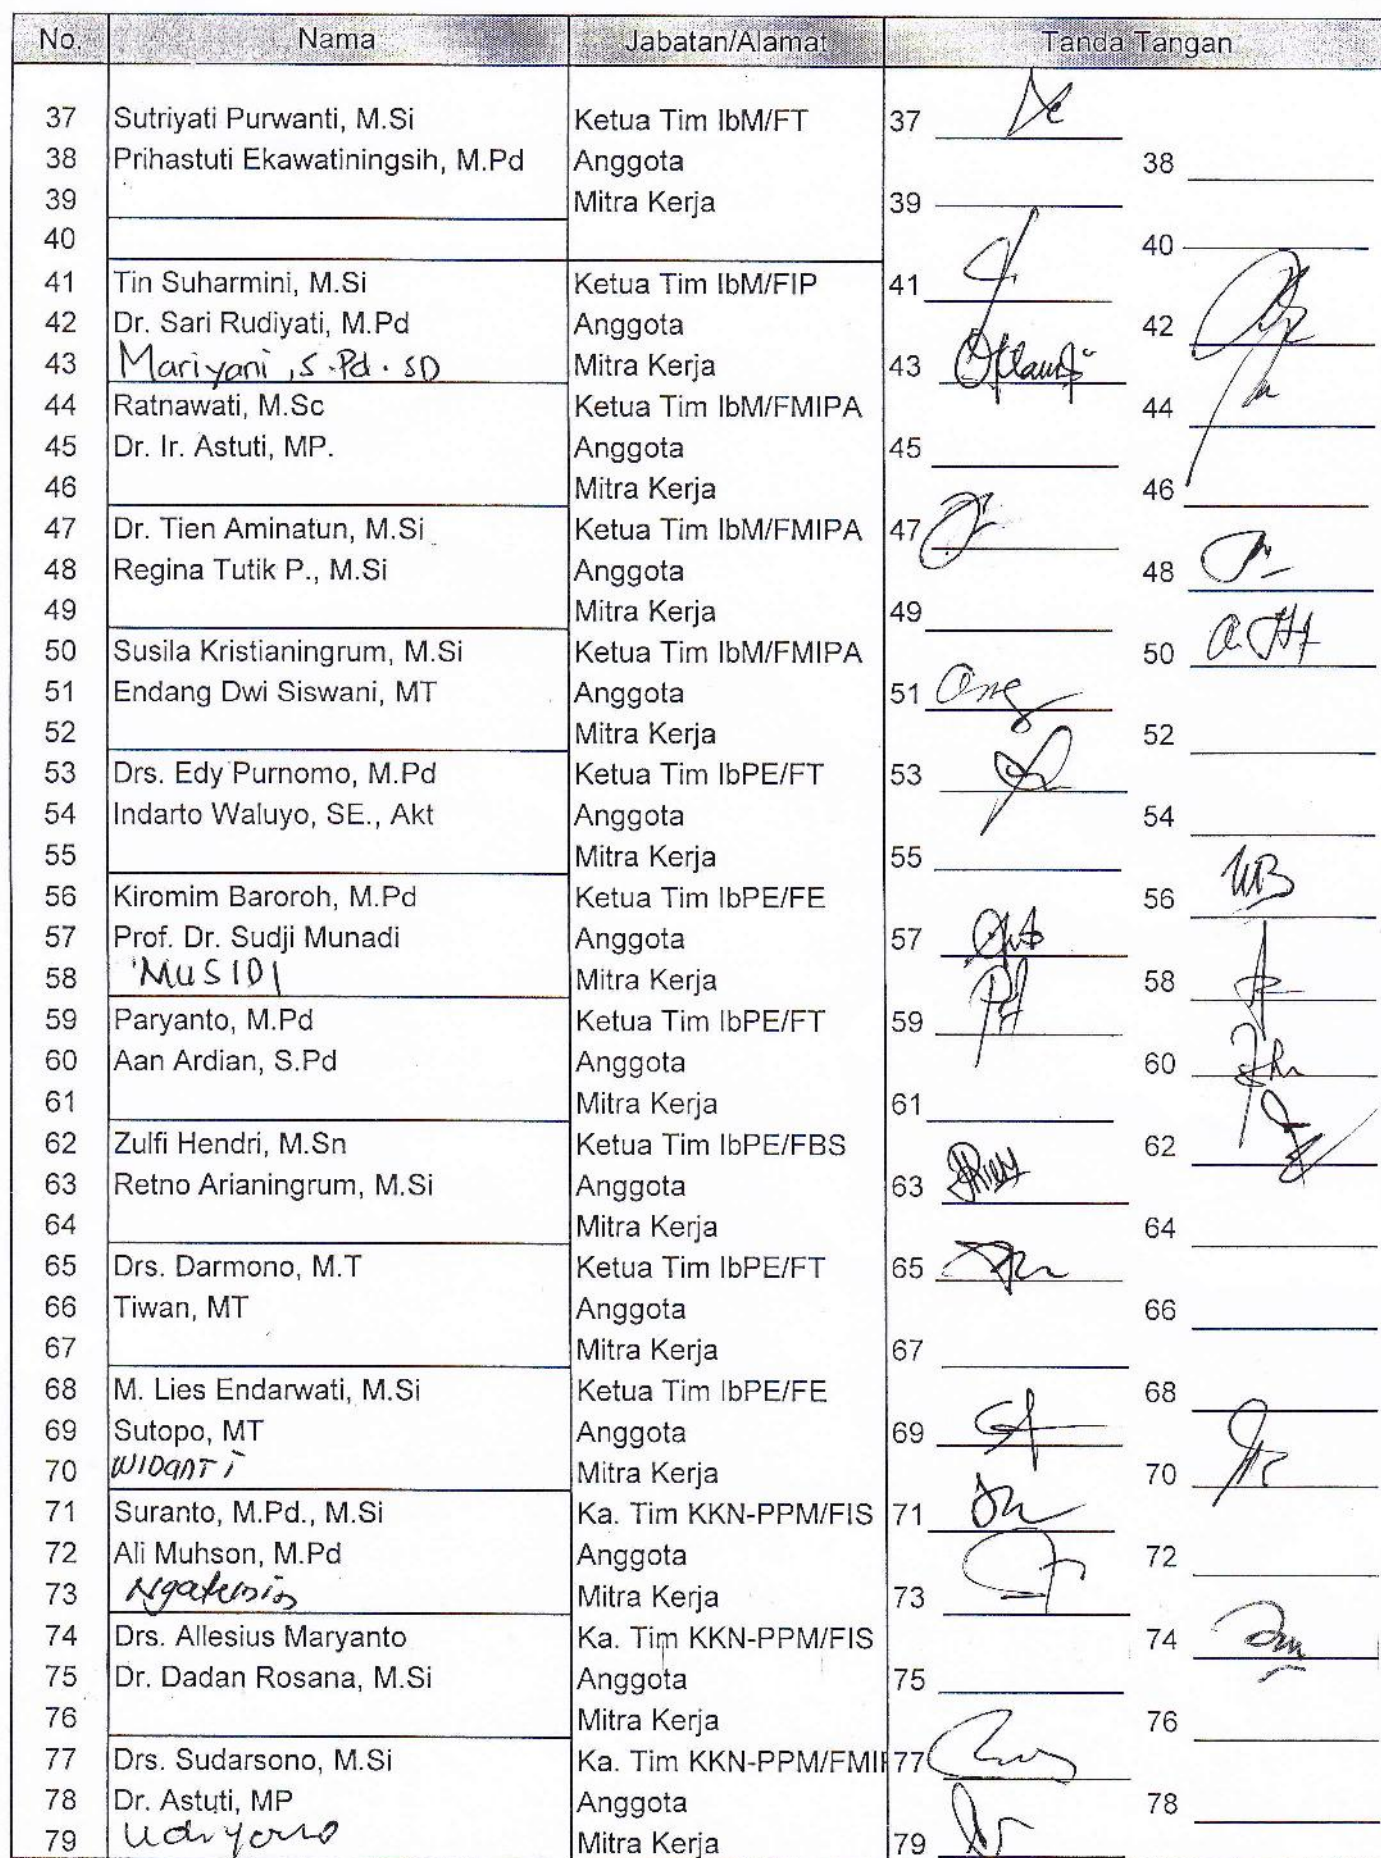 No. Nama Jabatan/Alamat Tanda Tangan
37 Sutriyati Purwanti, M.Si Ketua Tim IbM/FT 37
38 Prihastuti Ekawatiningsih, M.Pd Anggota 38
39 Mitra Kerja 39
40 40
41 Tin Suharmini, M.Si Ketua Tim IbM/FIP 41
42 Dr. Sari Rudiyati, M.Pd Anggota 42
43 Mariyani, S.Pd.SD Mitra Kerja 43
44 Ratnawati, M.Sc Ketua Tim IbM/FMIPA 44
45 Dr. Ir. Astuti, MP. Anggota 45
46 Mitra Kerja 46
47 Dr. Tien Aminatun, M.Si Ketua Tim IbM/FMIPA 47
48 Regina Tutik P., M.Si Anggota 48
49 Mitra Kerja 49
50 Susila Kristianingrum, M.Si Ketua Tim IbM/FMIPA 50
51 Endang Dwi Siswani, MT Anggota 51
52 Mitra Kerja 52
53 Drs. Edy Purnomo, M.Pd Ketua Tim IbPE/FT 53
54 Indarto Waluyo, SE., Akt Anggota 54
55 Mitra Kerja 55
56 Kiromim Baroroh, M.Pd Ketua Tim IbPE/FE 56
57 Prof. Dr. Sudji Munadi Anggota 57
58 MUSIDI Mitra Kerja 58
59 Paryanto, M.Pd Ketua Tim IbPE/FT 59
60 Aan Ardian, S.Pd Anggota 60
61 Mitra Kerja 61
62 Zulfi Hendri, M.Sn Ketua Tim IbPE/FBS 62
63 Retno Arianingrum, M.Si Anggota 63
64 Mitra Kerja 64
65 Drs. Darmono, M.T Ketua Tim IbPE/FT 65
66 Tiwan, MT Anggota 66
67 Mitra Kerja 67
68 M. Lies Endarwati, M.Si Ketua Tim IbPE/FE 68
69 Sutopo, MT Anggota 69
70 WIDANTI Mitra Kerja 70
71 Suranto, M.Pd., M.Si Ka. Tim KKN-PPM/FIS 71
72 Ali Muhson, M.Pd Anggota 72
73 Mitra Kerja 73
74 Drs. Allesius Maryanto Ka. Tim KKN-PPM/FIS 74
75 Dr. Dadan Rosana, M.Si Anggota 75
76 Mitra Kerja 76
77 Drs. Sudarsono, M.Si Ka. Tim KKN-PPM/FMI 77
78 Dr. Astuti, MP Anggota 78
79 Udiyono Mitra Kerja 79